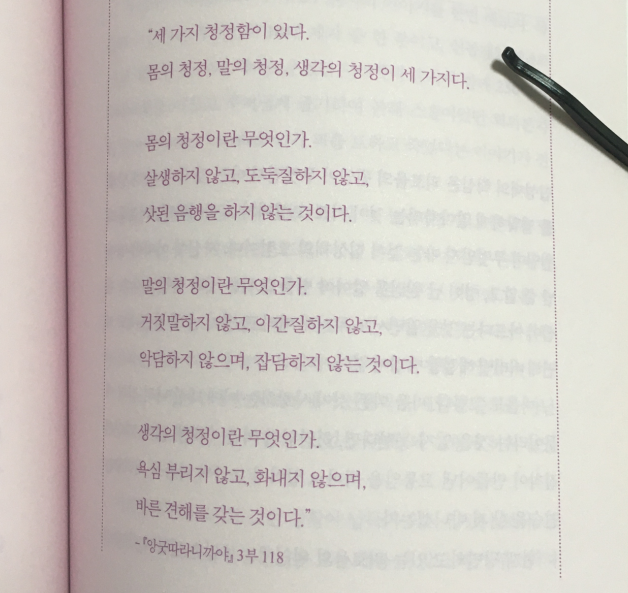 “세 가지 청정함이 있다.
몸의 청정, 말의 청정, 생각의 청정이 세 가지다.
몸의 청정이란 무엇인가.
살생하지 않고, 도둑질하지 않고,
삿된 음행을 하지 않는 것이다.
말의 청정이란 무엇인가.
거짓말하지 않고, 이간질하지 않고,
악담하지 않으며, 잡담하지 않는 것이다.
생각의 청정이란 무엇인가.
욕심 부리지 않고, 화내지 않으며,
바른 견해를 갖는 것이다.”
-『앙굿따라니까야』 3부 118